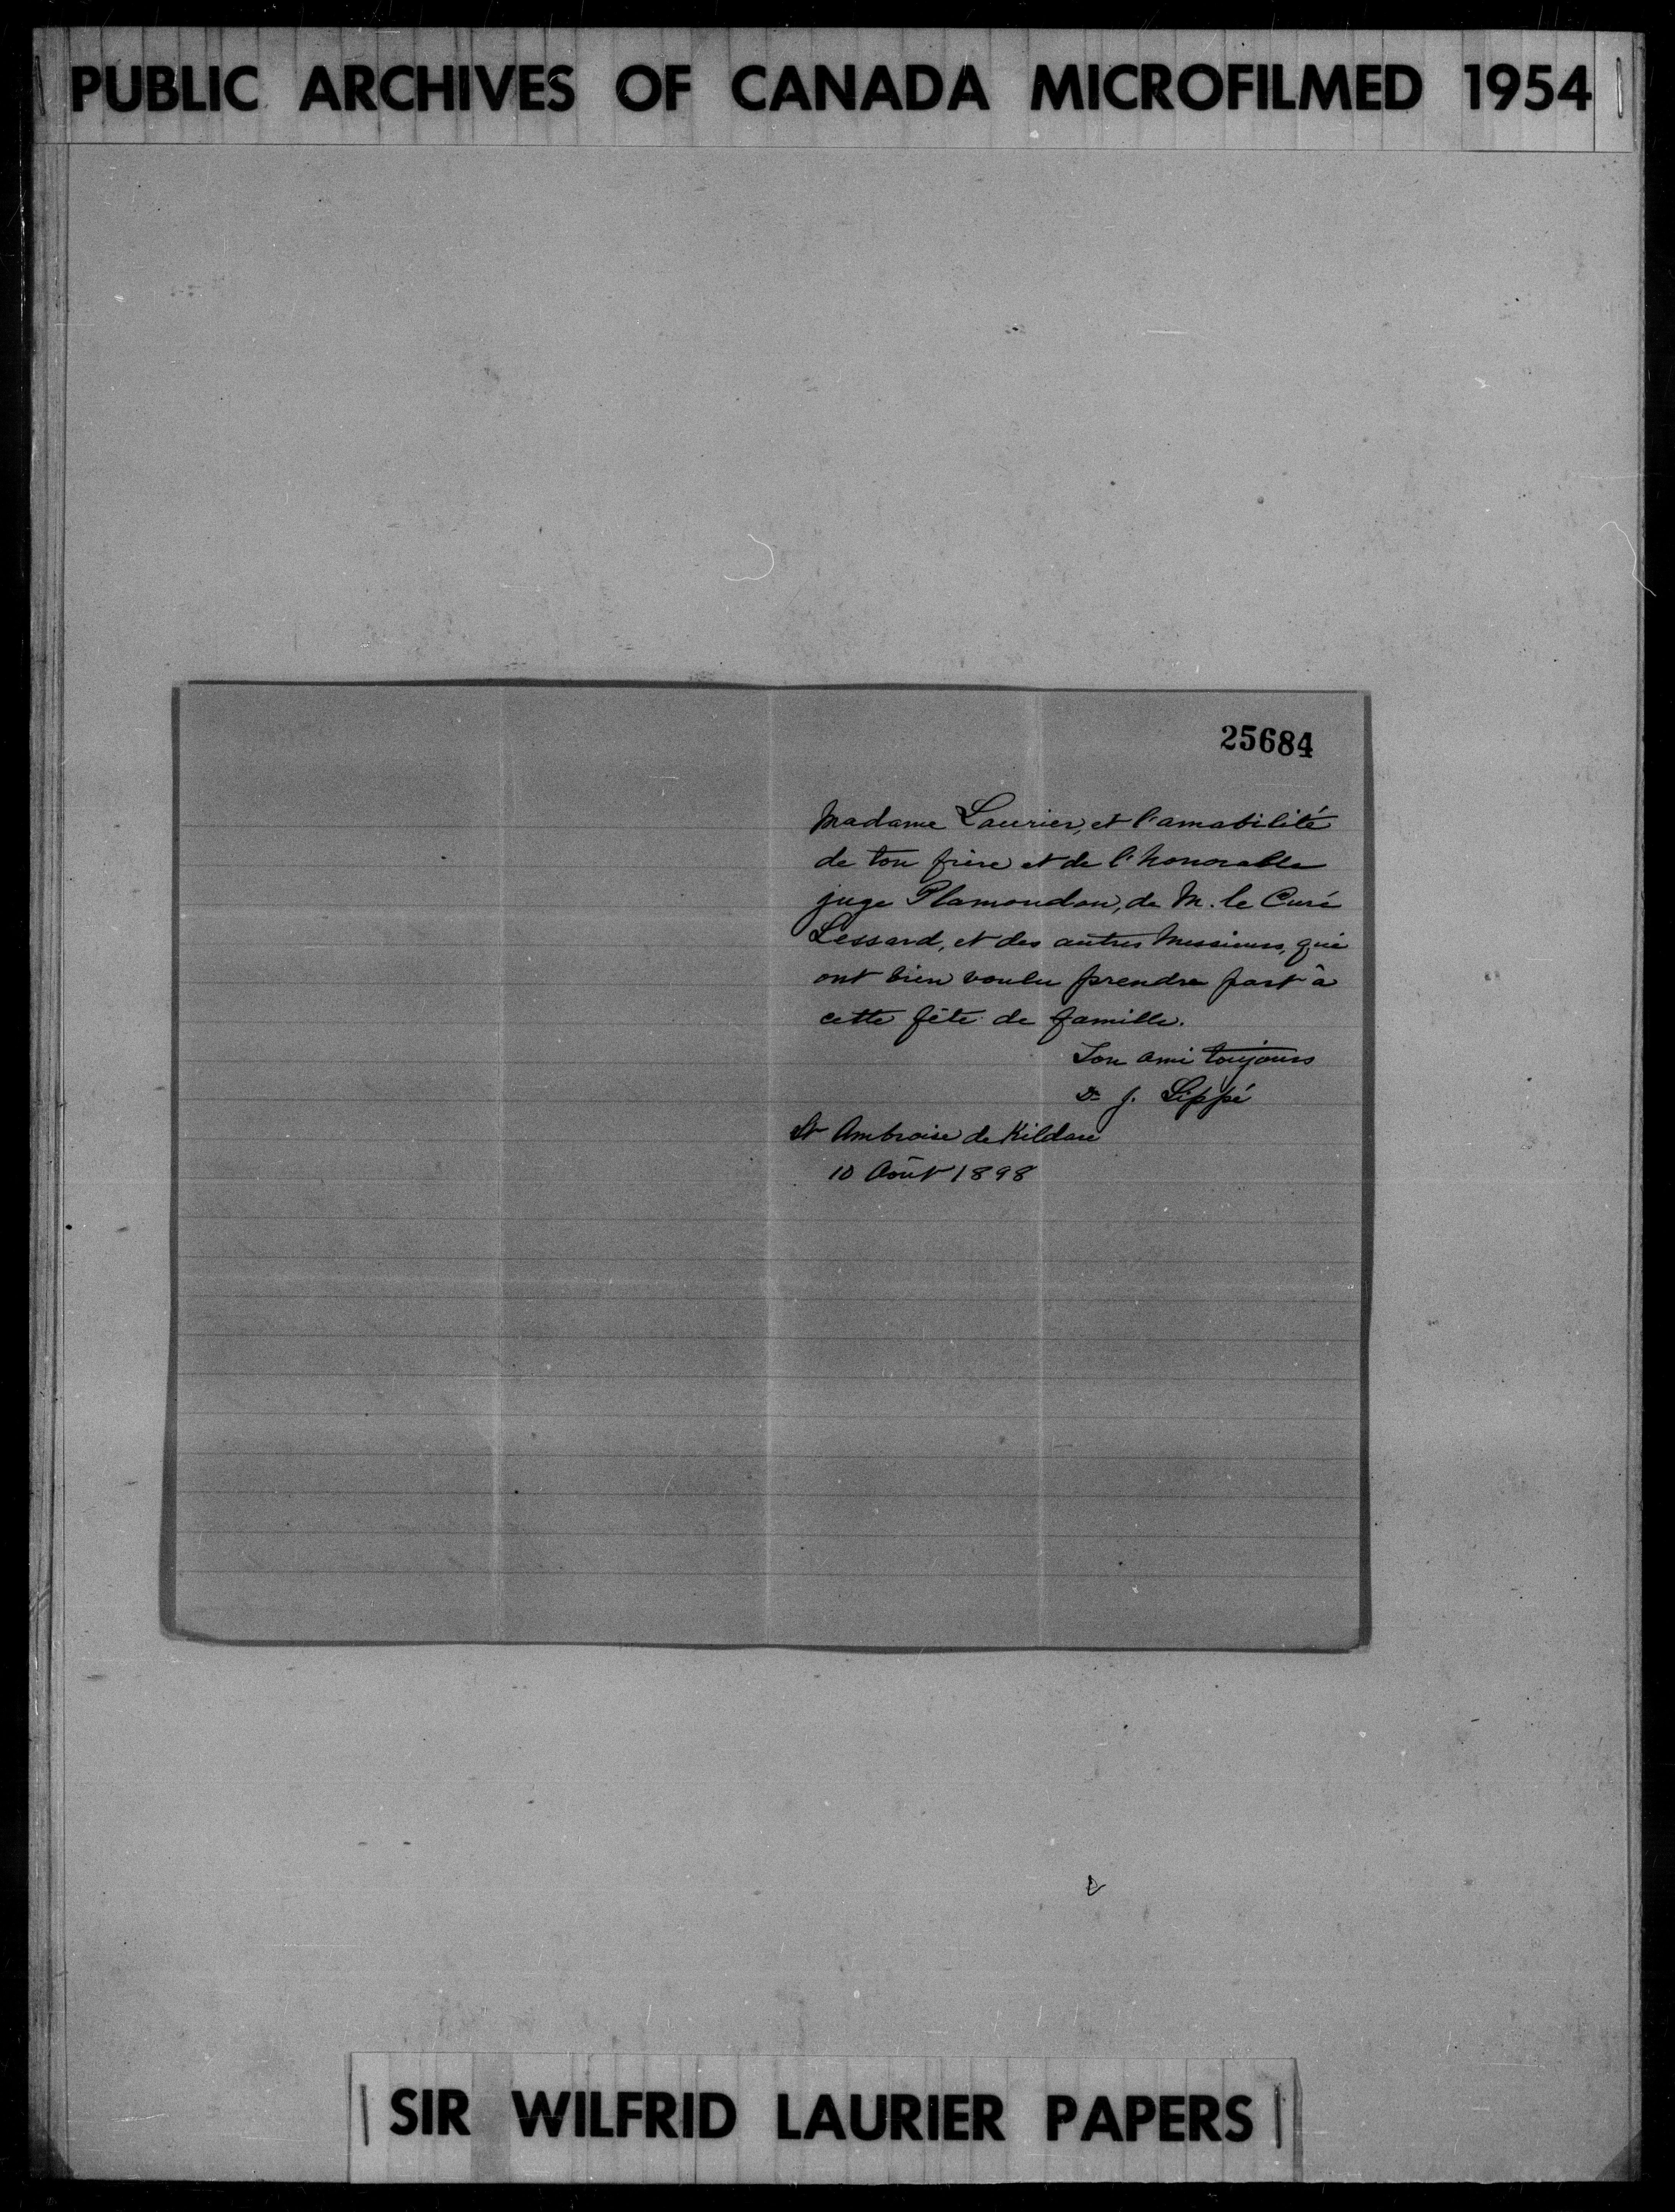 PUBLIC ARCHIVES OF CANADA MICROFILMED 1954
25684
Madame Laurier, et l'amabilité
de ton frère et de l'honorable
juge Plamondon, de M. le Curé
Lessard, et des autres Messieurs, qui
ont bien voulu prendre part à
cette fête de famille.
Ton ami toujours
Dr J. Lippé
St Ambroise de Kildare
10 Août 1898
SIR WILFRID LAURIER PAPERS